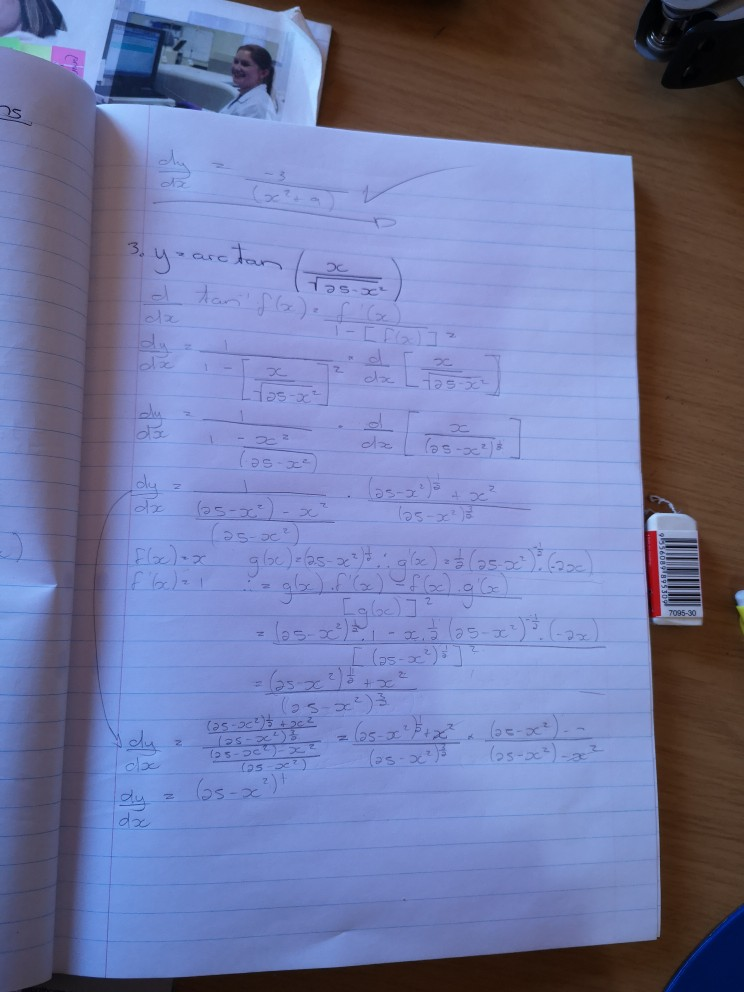 ns
dy/dx = -3/(x²+9) ✓
3. y = arctan (x/√25-x²)
d/dx tan⁻¹ f(x) = f'(x)/1-[f(x)]²
dy/dx = 1/1-[x/√25-x²]² · d/dx [x/√25-x²]
dy/dx = 1/1-x²/(25-x²) · d/dx [x/(25-x²)^½]
dy/dx = 1/(25-x²)-x²/(25-x²) · (25-x²)^½+x²/(25-x²)^3/2
f(x) = x g(x) = (25-x²)^½ ∴ g'(x) = ½(25-x²)^-½·(-2x)
f'(x) = 1 ∴ = g(x)·f'(x) - f(x)·g'(x)/[g(x)]²
= (25-x²)^½·1 - x·½(25-x²)^-½·(-2x)/[(25-x²)^½]²
= (25-x²)^½+x²/(25-x²)^3/2
dy/dx = (25-x²)^½+x²/(25-x²)^3/2/(25-x²)-x²/(25-x²) = (25-x²)^½+x²/(25-x²)^3/2 × (25-x²)/(25-x²)-x²
dy/dx = (25-x²)¹
9556089895309
7095-30